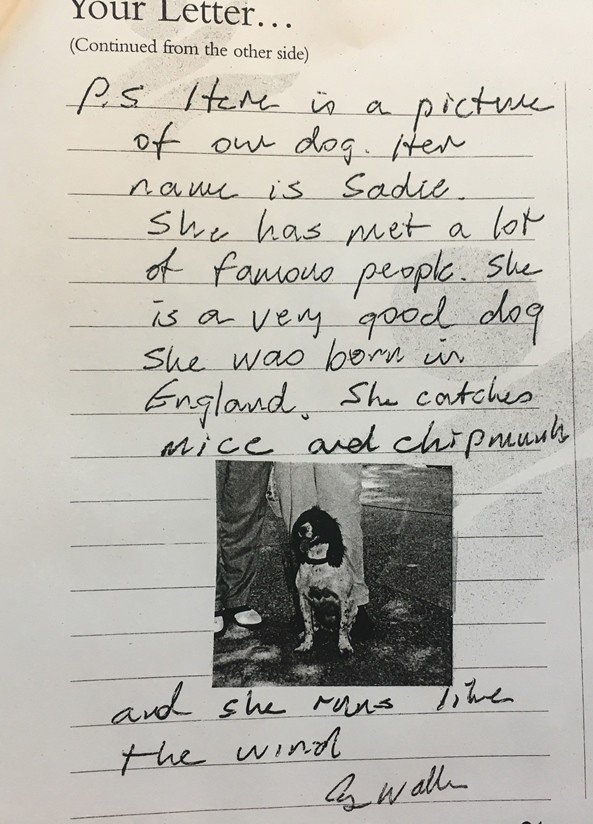 Your Letter...
(Continued from the other side)
P.S Here is a picture
of our dog. Her
name is Sadie.
She has met a lot
of famous people. She
is a very good dog
She was born in
England. She catches
mice and chipmunks
and she runs like
the wind